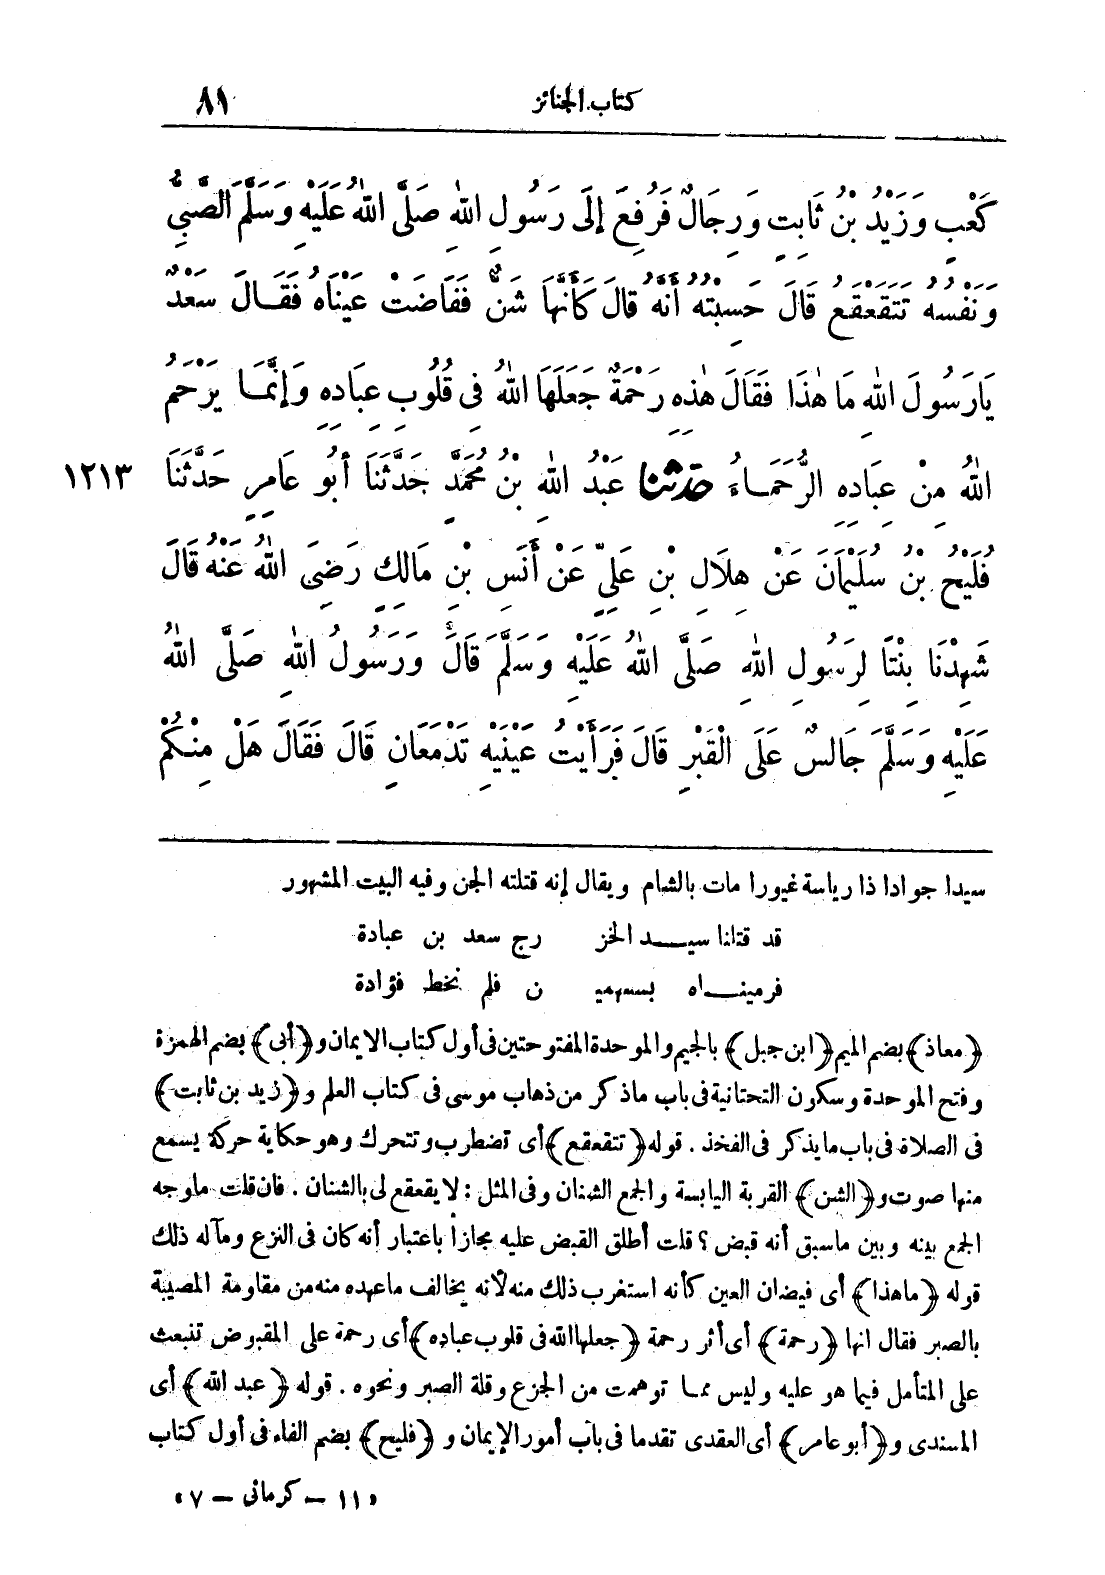 كتاب الجنائز ٨١
كَعْبٍ وَزَيْدُ بْنُ ثَابِتٍ وَرِجَالٌ فَرُفِعَ إِلَى رَسُولِ اللهِ صَلَّى اللهُ عَلَيْهِ وَسَلَّمَ الصَّبِيُّ
وَنَفْسُهُ تَتَقَعْقَعُ قَالَ حَسِبْتُهُ أَنَّهُ قَالَ كَأَنَّهَا شَنٌّ فَفَاضَتْ عَيْنَاهُ فَقَالَ سَعْدٌ
يَارَسُولَ اللهِ مَا هٰذَا فَقَالَ هٰذِهِ رَحْمَةٌ جَعَلَهَا اللهُ فِى قُلُوبِ عِبَادِهِ وَإِنَّمَا يَرْحَمُ
اللهُ مِنْ عِبَادِهِ الرُّحَمَاءَ حَدَّثَنَا عَبْدُ اللهِ بْنُ مُحَمَّدٍ حَدَّثَنَا أَبُو عَامِرٍ حَدَّثَنَا ١٢١٣
فُلَيْحُ بْنُ سُلَيْمَانَ عَنْ هِلَالِ بْنِ عَلِيٍّ عَنْ أَنَسِ بْنِ مَالِكٍ رَضِيَ اللهُ عَنْهُ قَالَ
شَهِدْنَا بِنْتًا لِرَسُولِ اللهِ صَلَّى اللهُ عَلَيْهِ وَسَلَّمَ قَالَ وَرَسُولُ اللهِ صَلَّى اللهُ
عَلَيْهِ وَسَلَّمَ جَالِسٌ عَلَى الْقَبْرِ قَالَ فَرَأَيْتُ عَيْنَيْهِ تَدْمَعَانِ قَالَ فَقَالَ هَلْ مِنْكُمْ
سيدا جوادا ذا رياسة غيورا مات بالشام ويقال إنه قتلته الجن وفيه البيت المشهور
قد قتلنا سيد الخز رج سعد بن عبادة
فرميناه بسهميـ ن فلم نخط فؤادة
﴿معاذ﴾ بضم الميم ﴿ابن جبل﴾ بالجيم والموحدة المفتوحتين فى أول كتاب الايمان و﴿أبى﴾ بضم الهمزة
وفتح الموحدة وسكون التحتانية فى باب ماذكر من ذهاب موسى فى كتاب العلم و﴿زيد بن ثابت﴾
فى الصلاة فى باب مايذكر فى الفخذ . قوله ﴿تتقعقع﴾ أى تضطرب وتتحرك وهو حكاية حركة يسمع
منها صوت و﴿الشن﴾ القربة اليابسة والجمع الشنان وفى المثل : لا يقعقع لى بالشنان . فان قلت ماوجه
الجمع بينه وبين ماسبق أنه قبض ؟ قلت أطلق القبض عليه مجازاً باعتبار أنه كان فى النزع ومآله ذلك
قوله ﴿ماهذا﴾ أى فيضان العين كأنه استغرب ذلك منه لأنه يخالف ماعهده منه من مقاومة المصيبة
بالصبر فقال انها ﴿رحمة﴾ أى أثر رحمة ﴿جعلها الله فى قلوب عباده﴾ أى رحمة على المقبوض تنبعث
على المتأمل فيما هو عليه وليس مما توهمت من الجزع وقلة الصبر ونحوه . قوله ﴿عبد الله﴾ أى
المسندى و﴿أبو عامر﴾ أى العقدى تقدما فى باب أمور الإيمان و ﴿فليح﴾ بضم الفاء فى أول كتاب
«١١ – كرمانى – ٧»